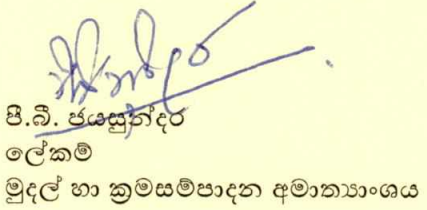 පී.බී. ජයසුන්දර
ලේකම්
මුදල් හා ක්‍රමසම්පාදන අමාත්‍යාංශය